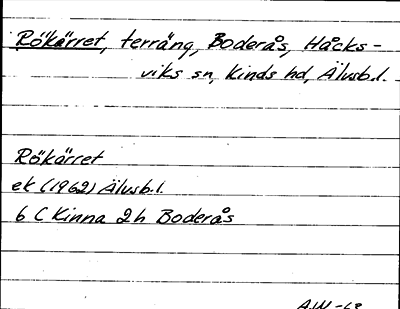 Rökärret, terräng, Boderås, Håcks-
viks sn, Kinds hd, Älvsb.l.
Rökärret
ek (1962) Älvsb.l.
6 C Kinna 2h Boderås